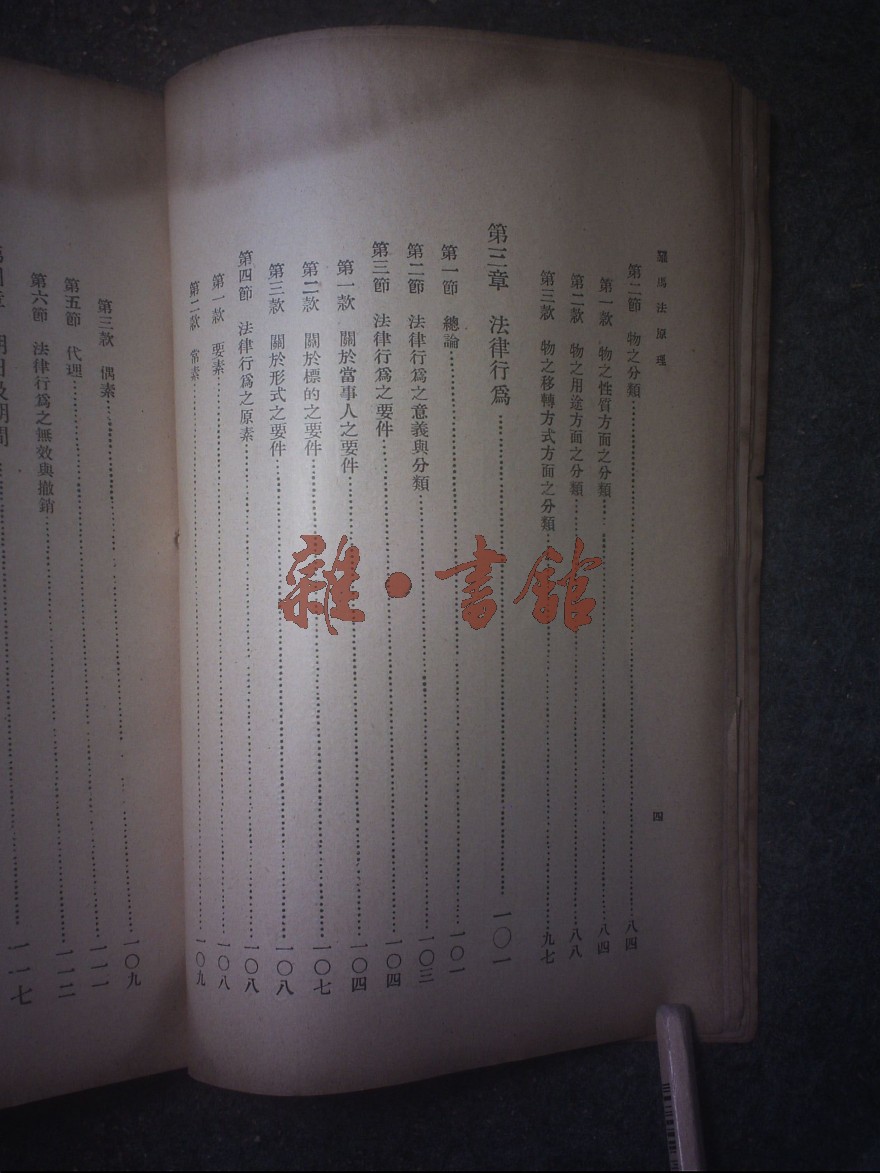 羅馬法原理
四
第二節　物之分類………八四
第一款　物之性質方面之分類………八四
第二款　物之用途方面之分類………八八
第三款　物之移轉方式方面之分類………九七
第三章　法律行爲………一〇一
第一節　總論………一〇一
第二節　法律行爲之意義與分類………一〇三
第三節　法律行爲之要件………一〇四
第一款　關於當事人之要件………一〇四
第二款　關於標的之要件………一〇七
第三款　關於形式之要件………一〇八
第四節　法律行爲之原素………一〇八
第一款　要素………一〇八
第二款　常素………一〇九
第三款　偶素………一〇九
第五節　代理………一一一
第六節　法律行爲之無效與撤銷………一一二
第四章　期日及期間………一一七
雜·書館